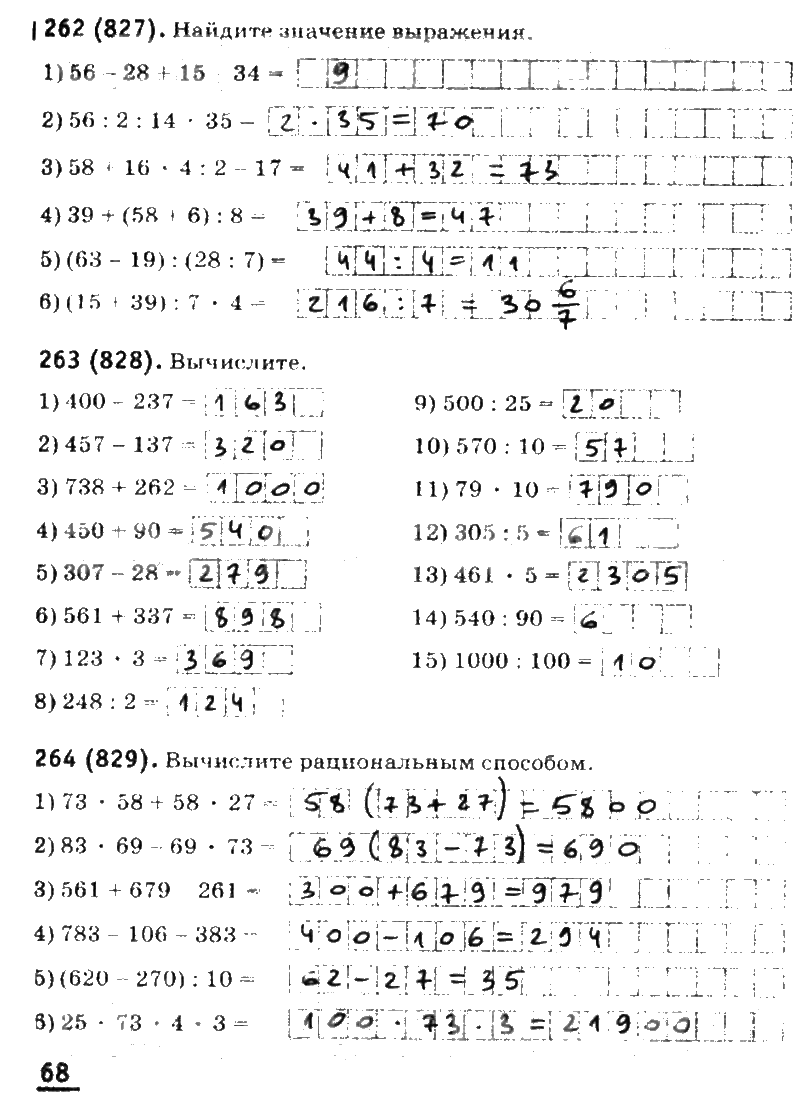 262 (827). Найдите значение выражения.
1) 56 - 28 + 15   34 = 9
2) 56 : 2 : 14 · 35 = 2 · 35 = 70
3) 58 + 16 · 4 : 2 - 17 = 41 + 32 = 73
4) 39 + (58 + 6) : 8 = 39 + 8 = 47
5) (63 - 19) : (28 : 7) = 44 : 4 = 11
6) (15 + 39) : 7 · 4 = 216 : 7 = 30 6/7
263 (828). Вычислите.
1) 400 - 237 = 163
2) 457 - 137 = 320
3) 738 + 262 = 1000
4) 450 + 90 = 540
5) 307 - 28 = 279
6) 561 + 337 = 898
7) 123 · 3 = 369
8) 248 : 2 = 124
9) 500 : 25 = 20
10) 570 : 10 = 57
11) 79 · 10 = 790
12) 305 : 5 = 61
13) 461 · 5 = 2305
14) 540 : 90 = 6
15) 1000 : 100 = 10
264 (829). Вычислите рациональным способом.
1) 73 · 58 + 58 · 27 = 58 (73 + 27) = 5800
2) 83 · 69 - 69 · 73 = 69 (83 - 73) = 690
3) 561 + 679   261 = 300 + 679 = 979
4) 783 - 106 - 383 = 400 - 106 = 294
5) (620 - 270) : 10 = 62 - 27 = 35
6) 25 · 73 · 4 · 3 = 100 · 73 · 3 = 21900
68